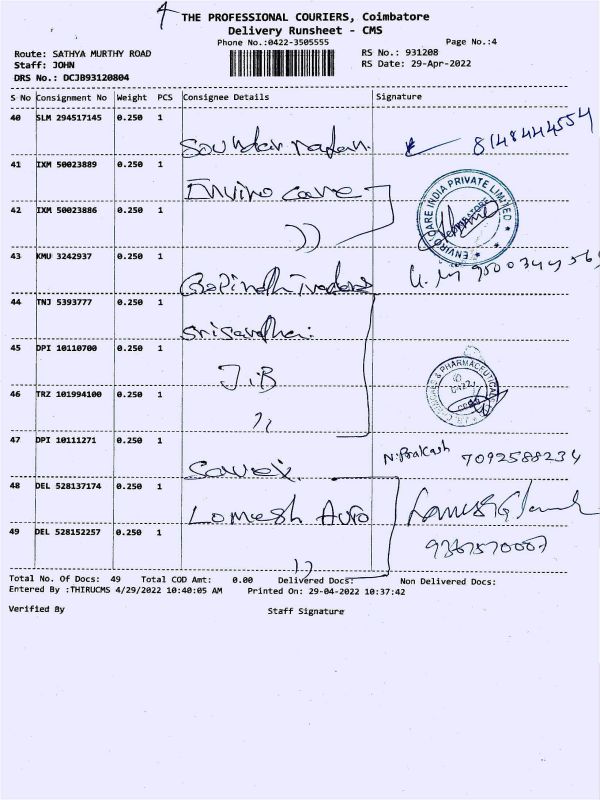 4
THE PROFESSIONAL COURIERS, Coimbatore
Delivery Runsheet - CMS
Phone No.:0422-3505555
Page No.:4
Route: SATHYA MURTHY ROAD
RS No.: 931208
Staff: JOHN
RS Date: 29-Apr-2022
DRS No.: DCJB93120804
S No Consignment No Weight PCS Consignee Details Signature
40 SLM 294517145 0.250 1
8148444554
41 IXM 50023889 0.250 1 Enviro care
ENVIRO CARE INDIA PRIVATE LIMITED
42 IXM 50023886 0.250 1 ))
43 KMU 3242937 0.250 1 Gopinath Traders
44 TNJ 5393777 0.250 1
45 DPI 10110700 0.250 1 J.B
46 TRZ 101994100 0.250 1 ))
& PHARMACEUTICALS
47 DPI 10111271 0.250 1
N. Prakash 7092588234
48 DEL 528137174 0.250 1 Lomesh Auto
49 DEL 528152257 0.250 1 ))
9367570007
Total No. Of Docs: 49 Total COD Amt: 0.00 Delivered Docs: Non Delivered Docs:
Entered By :THIRUCMS 4/29/2022 10:40:05 AM Printed On: 29-04-2022 10:37:42
Verified By Staff Signature